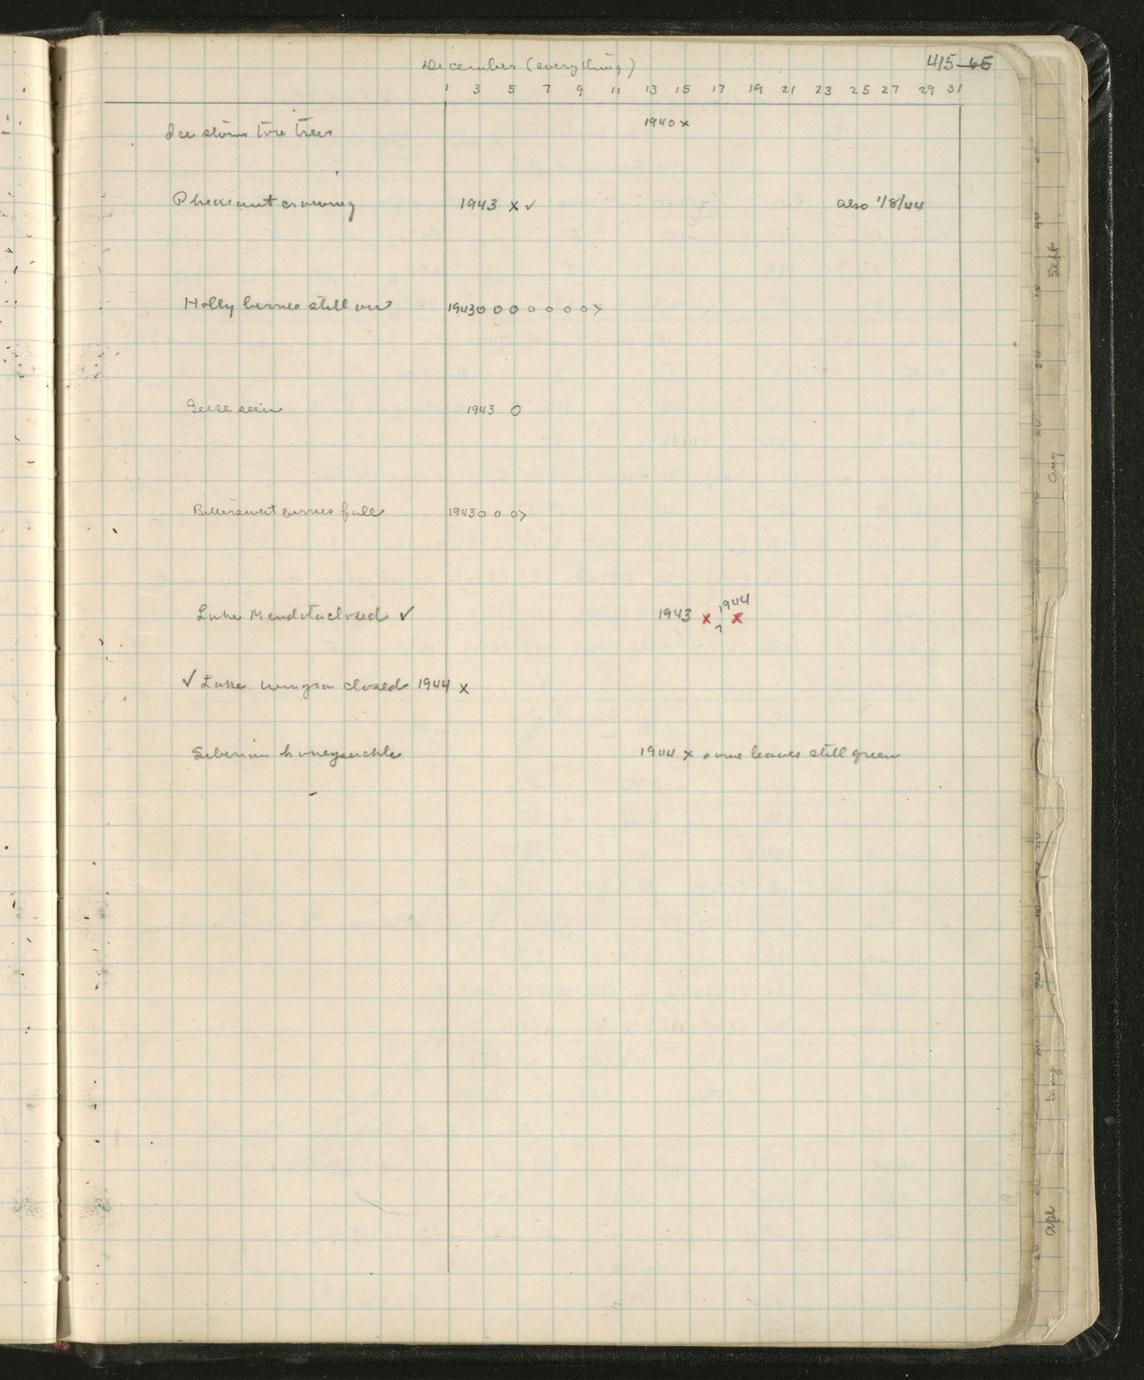 December (everything) 415-65
1 3 5 7 9 11 13 15 17 19 21 23 25 27 29 31
Ice storm tore trees 1940 x
Pheasant crowing 1943 x ✓ also 1/8/44
Holly berries still on 1943 o o o o o o o >
Geese seen 1943 o
Bittersweet berries full 1943 o o o >
Lake Mendota closed ✓ 1943 x ? 1944 x
✓ Lake Wingra closed 1944 x
Siberian honeysuckle 1944 x some leaves still green
Sept
Aug
Apl